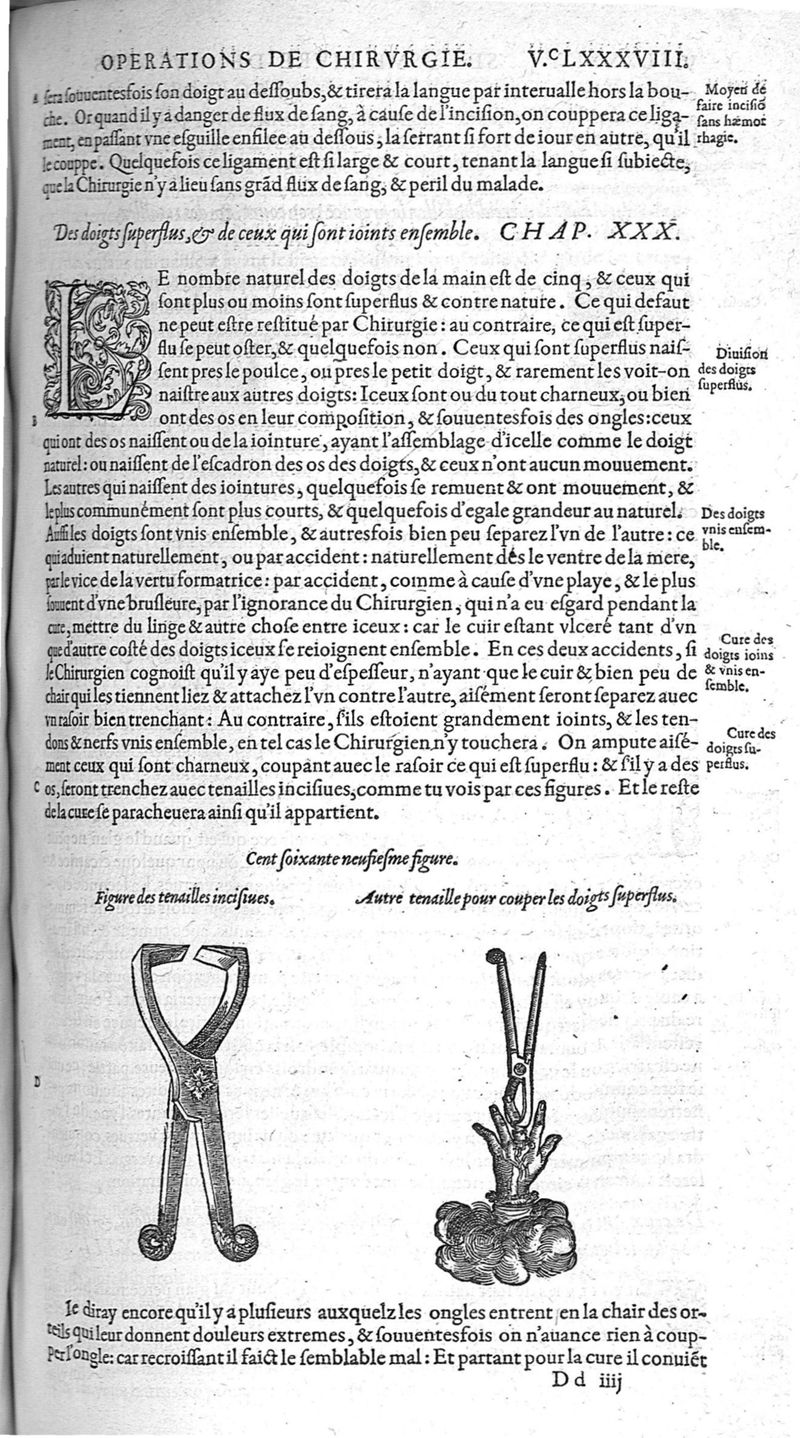 OPERATIONS DE CHIRVRGIE. V.ᶜLXXXVIII.
A ſera ſouuentesfois ſon doigt au deſſoubs, & tirera la langue par interualle hors la bou-
che. Or quand il y a danger de flux de ſang, à cauſe de l'inciſion, on couppera ce liga-
ment, en paſſant vne eſguille enfilee au deſſous, la ſerrant ſi fort de iour en autre, qu'il
le couppe. Quelquefois ce ligament eſt ſi large & court, tenant la langue ſi ſubiecte,
que la Chirurgie n'y a lieu ſans grãd flux de ſang, & peril du malade.
Moyen de
faire inciſiõ
ſans hæmor
rhagie.
Des doigts ſuperflus, & de ceux qui ſont ioints enſemble. CHAP. XXX.
LE nombre naturel des doigts de la main eſt de cinq, & ceux qui
ſont plus ou moins ſont ſuperflus & contre nature. Ce qui defaut
ne peut eſtre reſtitué par Chirurgie: au contraire, ce qui eſt ſuper-
flu ſe peut oſter, & quelquefois non. Ceux qui ſont ſuperflus naiſ-
ſent pres le poulce, ou pres le petit doigt, & rarement les voit-on
naiſtre aux autres doigts: Iceux ſont ou du tout charneux, ou bien
B ont des os en leur compoſition, & ſouuentesfois des ongles: ceux
qui ont des os naiſſent ou de la iointure, ayant l'aſſemblage d'icelle comme le doigt
naturel: ou naiſſent de l'eſcadron des os des doigts, & ceux n'ont aucun mouuement.
Les autres qui naiſſent des iointures, quelquefois ſe remuent & ont mouuement, &
le plus communément ſont plus courts, & quelquefois d'egale grandeur au naturel.
Auſſi les doigts ſont vnis enſemble, & autresfois bien peu ſeparez l'vn de l'autre: ce
qui aduient naturellement, ou par accident: naturellement dés le ventre de la mere,
par le vice de la vertu formatrice: par accident, comme à cauſe d'vne playe, & le plus
ſouuent d'vne bruſleure, par l'ignorance du Chirurgien, qui n'a eu eſgard pendant la
cure, mettre du linge & autre choſe entre iceux: car le cuir eſtant vlceré tant d'vn
que d'autre coſté des doigts iceux ſe reioignent enſemble. En ces deux accidents, ſi
le Chirurgien cognoiſt qu'il y aye peu d'eſpeſſeur, n'ayant que le cuir & bien peu de
chair qui les tiennent liez & attachez l'vn contre l'autre, aiſément ſeront ſeparez auec
vn raſoir bien trenchant: Au contraire, ſ'ils eſtoient grandement ioints, & les ten-
dons & nerfs vnis enſemble, en tel cas le Chirurgien n'y touchera. On ampute aiſé-
ment ceux qui ſont charneux, coupant auec le raſoir ce qui eſt ſuperflu: & ſ'il y a des
C os, ſeront trenchez auec tenailles inciſiues, comme tu vois par ces figures. Et le reſte
de la cure ſe paracheuera ainſi qu'il appartient.
Diuiſion
des doigts
ſuperflus.
Des doigts
vnis enſem-
ble.
Cure des
doigts ioins
& vnis en-
ſemble.
Cure des
doigts ſu-
perflus.
Cent ſoixante neufieſme figure.
Figure des tenailles inciſiues.
Autre tenaille pour couper les doigts ſuperflus.
D
Ie diray encore qu'il y a pluſieurs auxquelz les ongles entrent en la chair des or-
teils qui leur donnent douleurs extremes, & ſouuentesfois on n'auance rien à coup-
per l'ongle: car recroiſſant il faict le ſemblable mal: Et partant pour la cure il conuiẽt
D d iiij